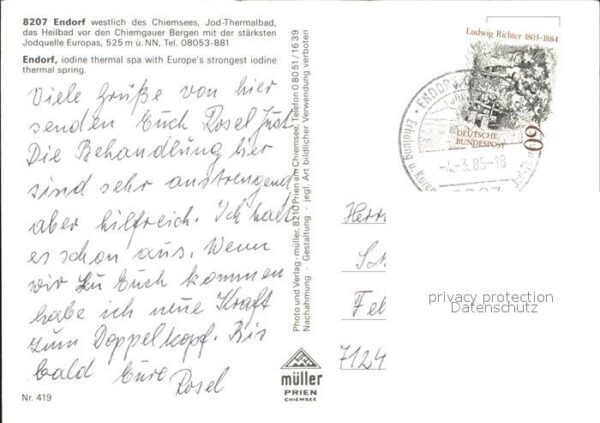 8207 Endorf westlich des Chiemsees, Jod-Thermalbad,
das Heilbad vor den Chiemgauer Bergen mit der stärksten
Jodquelle Europas, 525 m ü. NN, Tel. 08053-881
Endorf, iodine thermal spa with Europe's strongest iodine
thermal spring.
Viele Grüße von hier
senden Euch Rosel Just.
Die Behandlung hier
sind sehr anstrengend
aber hilfreich. Ich halt
es schon aus. Wenn
wir zu Euch kommen
habe ich neue Kraft
zum Doppelkopf. Bis
bald Eure
Rosel
Nr. 419
Photo und Verlag: müller, 8210 Prien am Chiemsee, Telefon 0 80 51 / 16 39
Nachahmung Gestaltung - jegl. Art bildlicher Verwendung verboten
müller
PRIEN
CHIEMSEE
Ludwig Richter 1803-1884
DEUTSCHE
BUNDESPOST
60
ENDORF
-4.-3.85-18
Erholung u. Kuren
8207
Herrn
Fel
7124
privacy protection
Datenschutz